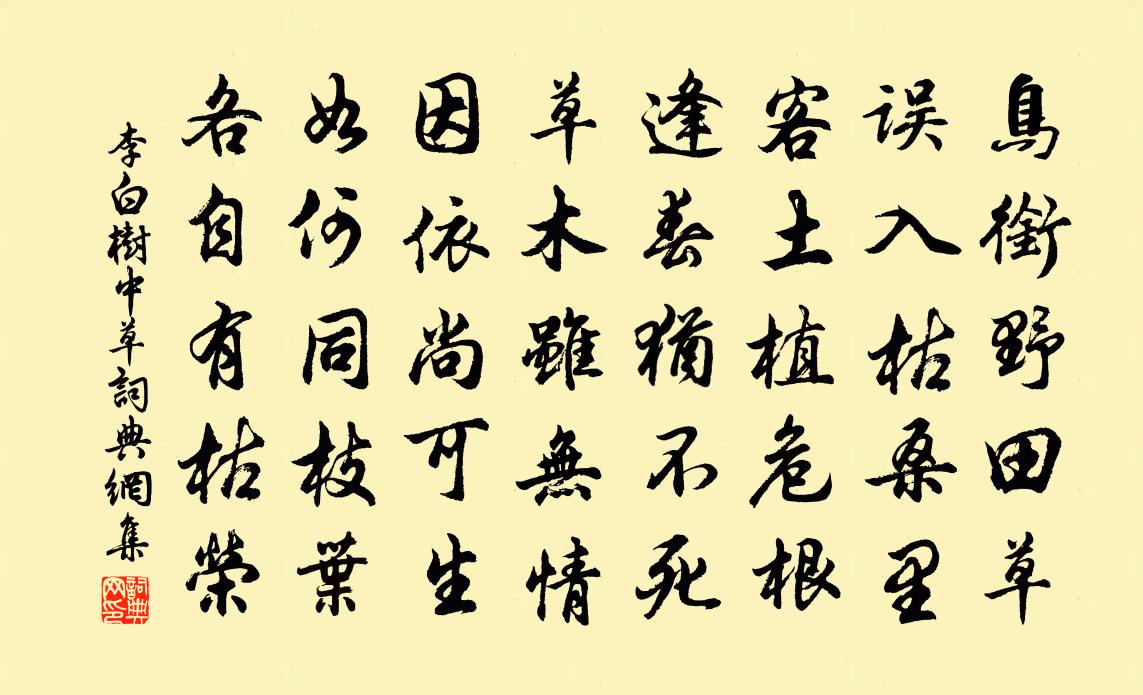 鳥銜野田草
误入枯桑里
客土植危根
逢春猶不死
草木雖無情
因依尚可生
如何同枝葉
各自有枯榮
李白樹中草詞典網集
詞典網印